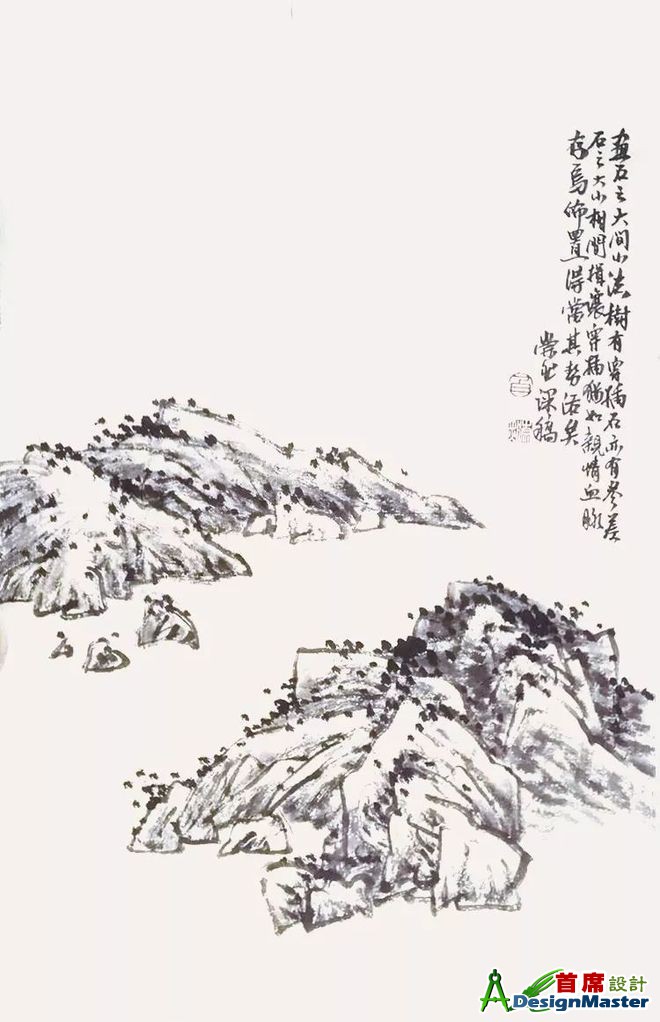 畫石之大間小法樹有穿插石亦有參差
石之大小相間揖讓穿插猶如親情血脈
存焉佈置得當其勢活矣
崇壯課稿
首席設計
DesignMaster